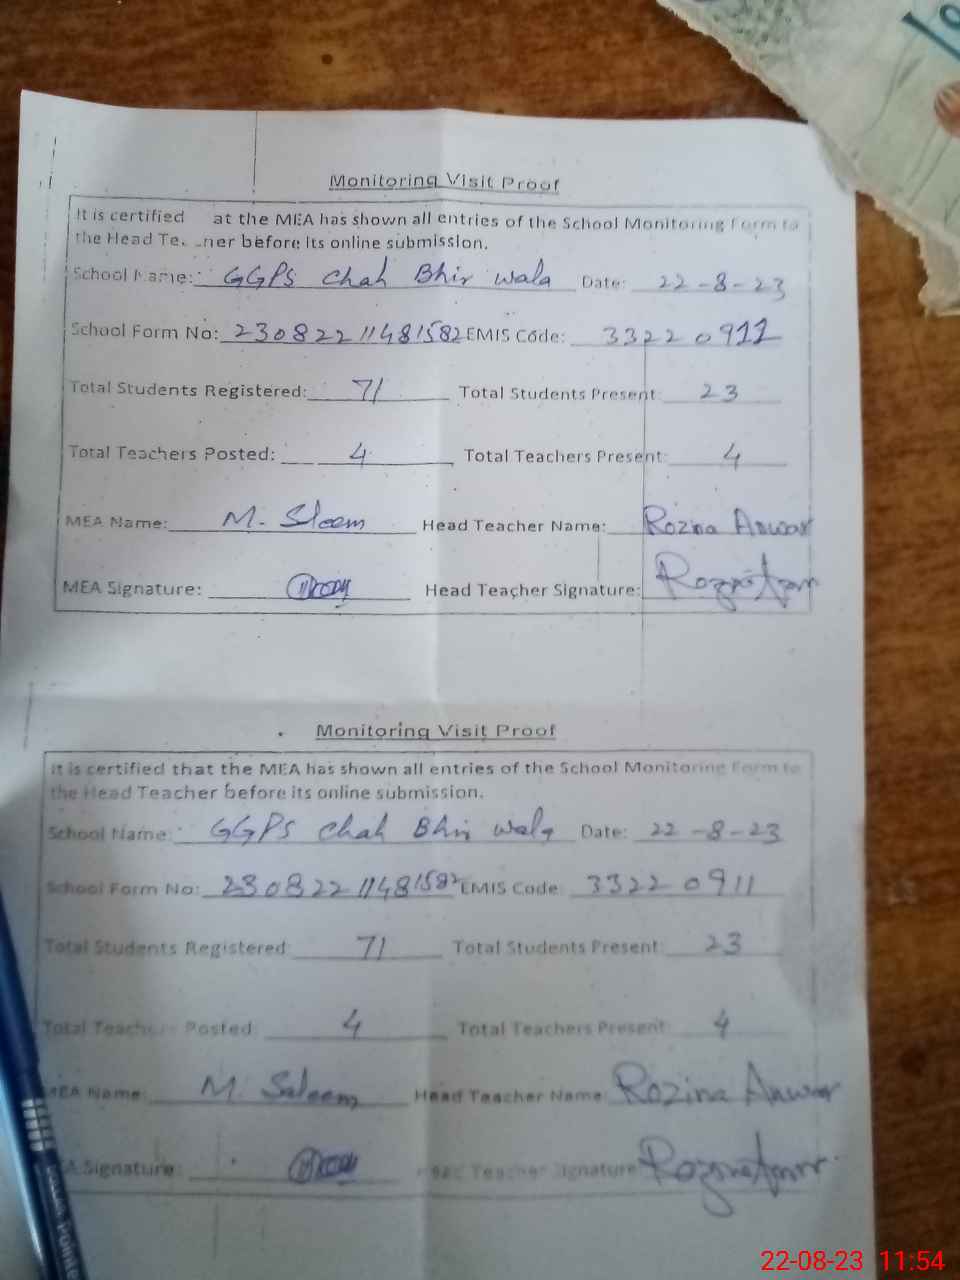 Monitoring Visit Proof
It is certified at the MEA has shown all entries of the School Monitoring Form to
the Head Te ner before its online submission.
School Name: GGPS Chah Bhir wala Date: 22-8-23
School Form No: 23082211481582 EMIS Code: 33220911
Total Students Registered: 71 Total Students Present: 23
Total Teachers Posted: 4 Total Teachers Present: 4
MEA Name: M. Sleem Head Teacher Name: Rozina Anwar
MEA Signature: Head Teacher Signature:
Monitoring Visit Proof
It is certified that the MEA has shown all entries of the School Monitoring Form to
the Head Teacher before its online submission.
School Name: GGPS Chah Bhir wala Date: 22-8-23
School Form No: 23082211481582 EMIS Code: 33220911
Total Students Registered: 71 Total Students Present: 23
Total Teachers Posted: 4 Total Teachers Present: 4
MEA Name: M. Saleem Head Teacher Name: Rozina Anwar
EA Signature: Head Teacher Signature:
22-08-23 11:54